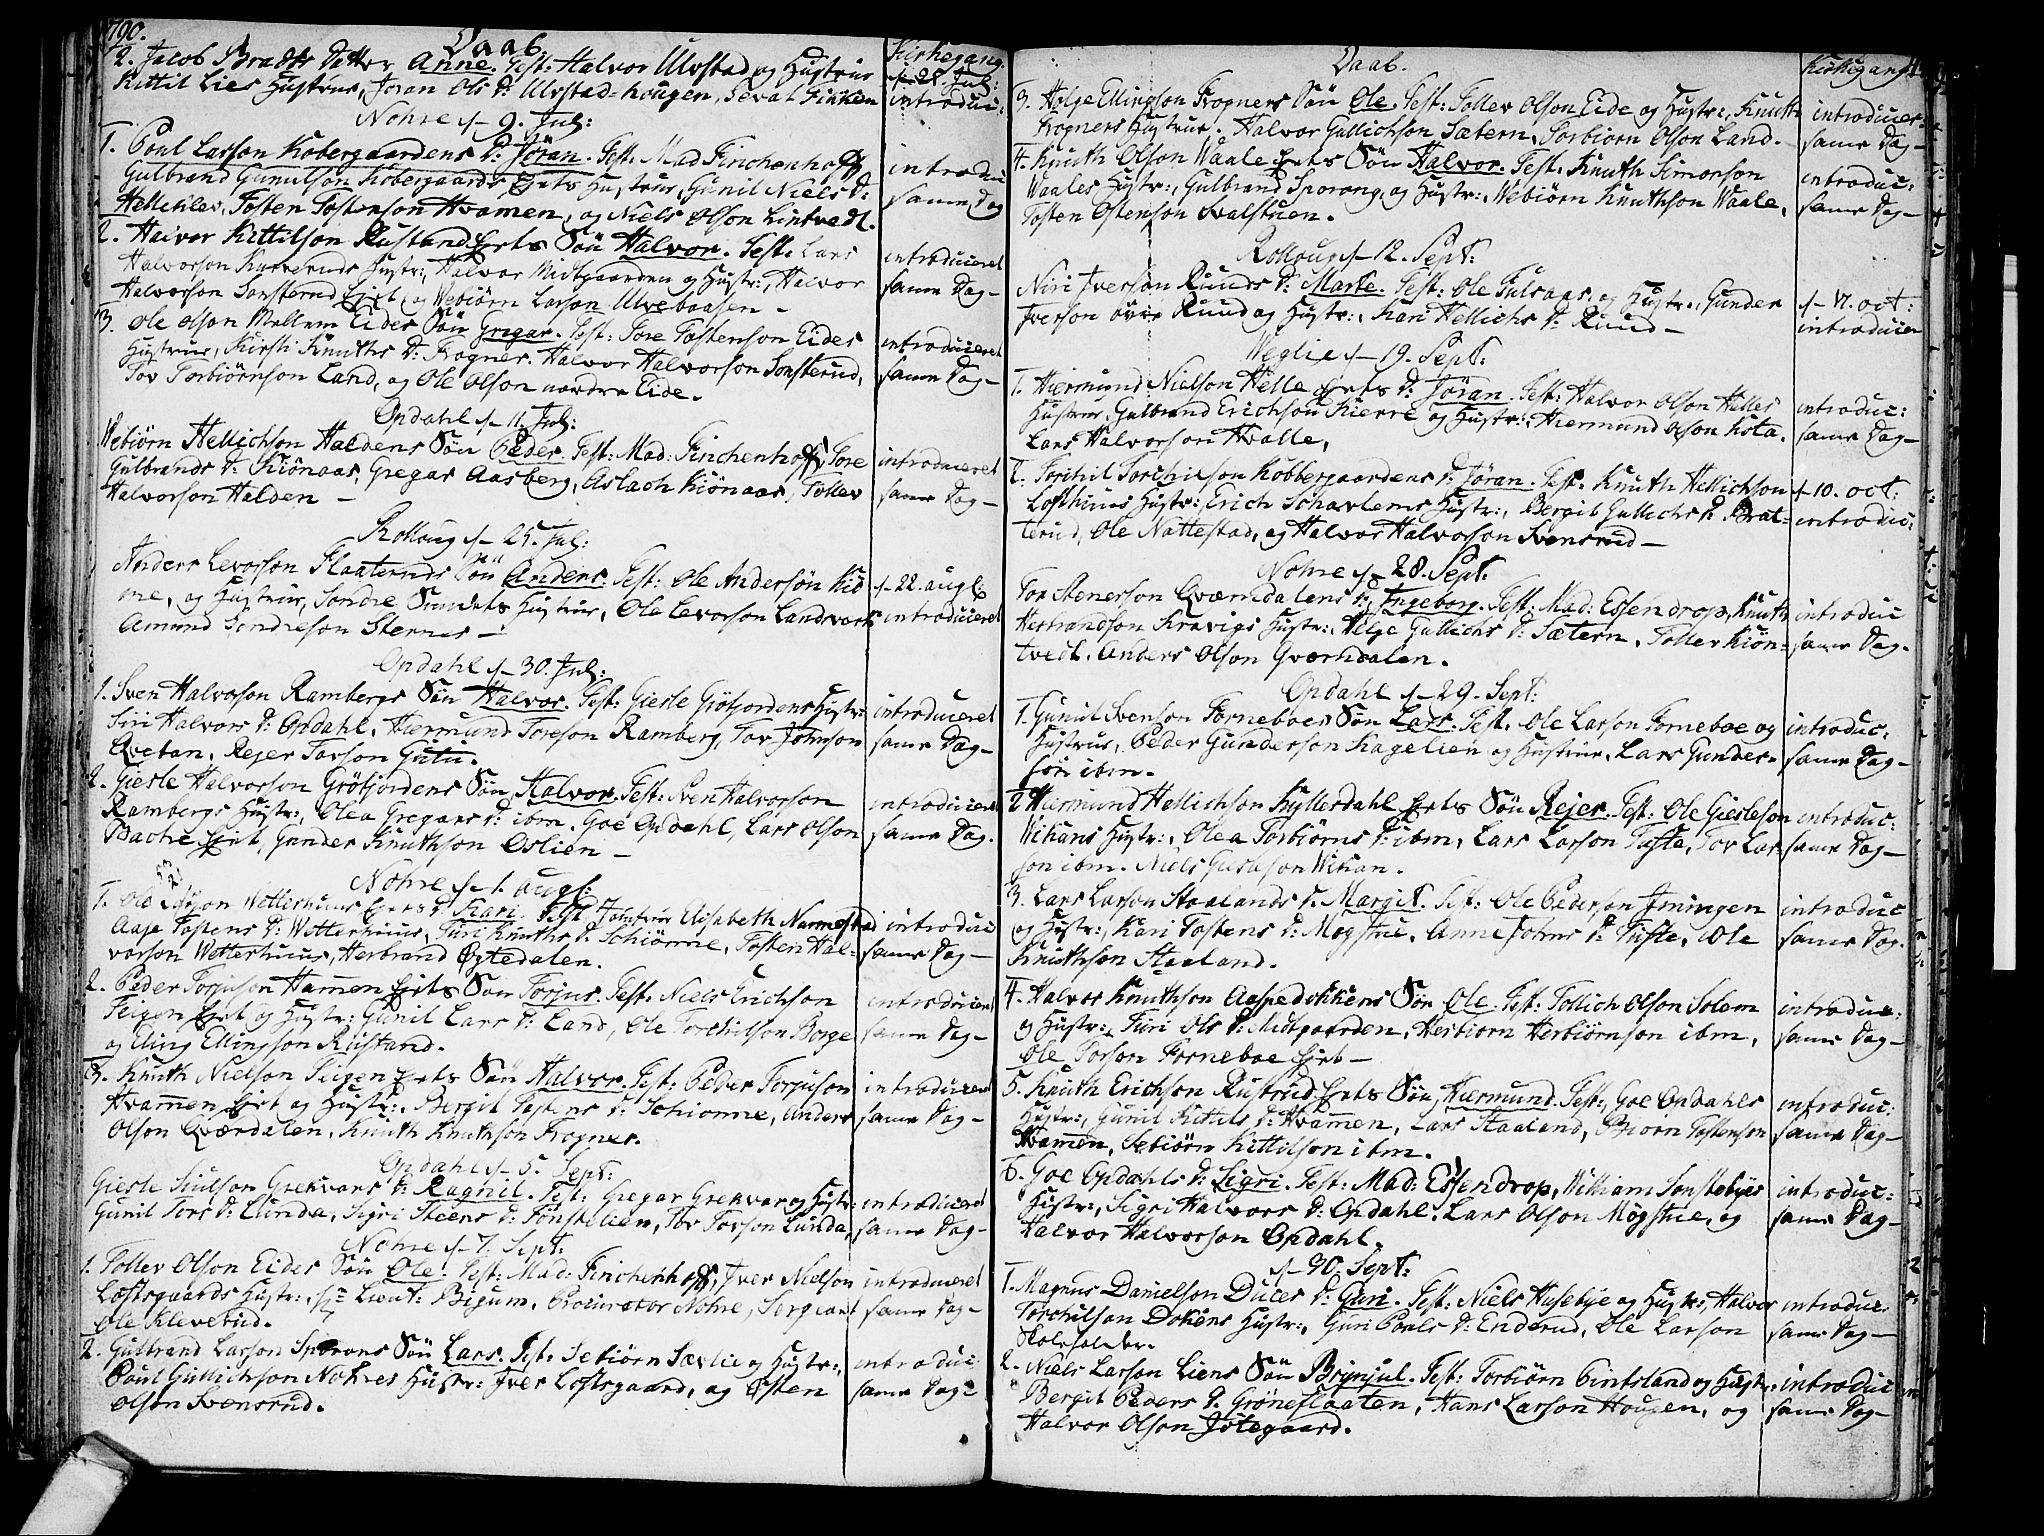 1790.
Daab.
Kirkegang.
2. Jacob Bradts Datter Anne. Test: Halvor Ulvstad og Hustrue
Kittil Lies Hustrue, Joran Ols D: Ulvstad-hougen, Sevat Finken
d. 25. Jul: introduc:
Nohre d. 9. Jul:
1. Poul Larson Kobergaardens D: Jöran. Test: Mad Finchenhoff
Gulbrand Gunulson Kobergaards Ejets Hustrue, Gunil Niels D:
Hellehlev, Tosten Tostenson Hvamen, og Niels Olson Lintvedt.
introduc
same Dag
2. Halvor Kittilson Rustand Ejets Sön Halvor. Test: Lars
Halvorson Hustr:, Halvor Midtgaarden og Hustr:, Halvor
Halvorson Sonsterud Ejet og Webiörn Larson Ulvebaasen –
introduceret
same Dag–
3. Ole Olson Mellem Eides Sön Gregar. Test: Tore Tostenson Eides
Hustrue, Kirsti Knuths D: Frogner. Halvor Halvorson Sonsterud,
Tov Torbiörnson Land, og Ole Olson nordre Eide.
introduceret
same Dag–
Opdahl d. 11. Jul:
Webiörn Hellichson Haldens Sön Peder. Test: Mad: Finchenhoff, Tore
Gulbrands D: Kiönaas, Gregar Aasberg, Aslach Kiönaas, Tollev
Halvorson Halden –
introduceret
same Dag–
Rolloug d. 25. Jul:
Anders Levorson Flaateruds Sön Andens. Test: Ole Andersön Kiö
ne, og Hustrue, Sondre Hustrue, Ole Levorson Landverk
Amund Sondreson Sternes –
d. 22. augl
introduceret
Opdahl d. 30. Jul:
1. Sven Halvorson Rambergs Sön Halvor. Test: Giesle Gröfjordens Hustr:
Siri Halvors D: Opdahl. Hiermund Toreson Ramberg, Tov Johnson
Qvetan, Rejer Torson Gutu.
introduceret
same Dag–
2. Giesle Halvorson Gröfjordens Sön Halvor. Test: Sven Halvorson
Rambergs Hustr:, Olea Gregars D: ibm. Goe Opdahl, Lars Olson
Bache Ejet, Gunder Knuthson Oslien –
introduceret
same Dag.
Nohre d. 1. Augl:
1. Ole Wetterhuus Ejets D: Kari. Test Jomfrue Elisabeth
Aase Tostens D: Wetterhuus, Turi Knuths D: Schiönne, Tosten Hal-
vorson Wetterhuus, Herbrand Ögtedalen.
introduc
same Dag–
2. Peder Torjuson Hamen Ejets Sön Torjus. Test: Niels Erichson
Feigen Ejet og Hustr: Gunil Lars D: Land, Ole Torchilson Borge
og Eling Ellingson Rustand.
introduceret
same Dag–
3. Knuth Nielson Seigen Ejets Sön Halvor. Test: Peder Torjuson
Hvamen Ejet og Hustr:, Bergit Tostens D: Schionne, Anders
Olson Qværdalen, Knuth Knuthson Frogner.
introduceret
same Dag–
Opdahl d. 5. Sept:
Giesle Grekvams D: Ragnil. Test: Gregar Grekvar og Hustr:
Gunil Tors D: Lunda, Sigri Steens D: Tonstelien, Tov Torson Lunda,
introduceret
same Dag–
Nohre d. 7. Sept:
1. Tollev Olson Eides Sön Ole. Test: Mad: Finchenhoff, Iver Nielson
Loftsgaards Hustr:, Lieut: Bigum, Procurator Nohre, Sergeant
Ole Kleverud.
introduceret
same Dag–
2. Gulbrand Larson Sporans Sön Lars. Test: Sebiörn Særlie og Hustr:,
Poul Gullichson Nohres Hustr: Iver Loftsgaard, og Östen
Olson Svensrud.
introduc:
same Dag–
Daab.
Kirkegang
3. Helge Ellingson Frogners Sön Ole. Test: Tollev Olson Eide og Hustr:, Knuth
Frogners Hustrue. Halvor Gullichson Sætern, Torbiörn Olson Land.
introducer
same Dag–
4. Knuth Olson Waale Ejets Sön Halvor. Test. Knuth Simonson
Waales Hustr:, Gulbrand Sporang, og Hustr:, Webiörn Knuthson Waale,
Tosten Östenson Svalstuen.
introduc:
same Dag–
Rolloug d. 12. Sept:
Niri Iverson Ruuds D: Marte. Test: Ole Tulsaas, og Hustr:, Gunder
Iverson övre Ruud og Hustr:, Kari Hellichs D: Ruud –
d. 17. oct:
introducer
Weglie d. 19. Sept:
1. Hiermund Nielson Helle Ejets D: Jöran. Test: Halvor Olson Helles
Hustrue, Gulbrand Erichson Kierre og Hustr:, Hiermund Olson Kota.
Lars Halvorson Hvalle.
introduc:
same Dag–
2. Torchil Torchilson Kobbergaardens D: Jöran. Test. Knuth Hellichson
Lofthuus Hustr: Erich Schavlems Hustr:, Bergit Gullichs D: Brat-
terud, Ole Nattestad, og Halvor Halvorson Svensrud –
d. 10. oct:
introduc:
Nohre d. 28. Sept:
Tor Stenerson Qværndalens D: Ingeborg. Test: Mad: Essendrop, Knuth
Herbrandson Kravigs Hustr:, Helge Gullichs D: Sætern, Tollev Kiön-
tvedt. Anders Olson Qværndalen.
introduc
same Dag.
Opdahl d. 29. Sept:
1. Gunul Svenson Forneboes Sön Lars. Test. Ole Larson Forneboe og
Hustrue, Peder Gunderson Kagelien og Hustrue, Lars Gunder-
son ibm.
introduc.
same Dag–
2 Hiermund Hellichson Hyllerdahl Ejets Sön Rejer. Test: Ole Giesleson
Wikans Hustr:, Olea Torbiörns D: ibm, Lars Larson Tufte, Tov Lar-
son ibm. Niels Gieslesön Wikan.
introduc:
same Dag–
3. Lars Larson Staalands D: Margit. Test: Ole Pederson Imingen
og Hustr:, Kari Tostens D: Mogstue, Anne Johns D: Tufte, Ole
Knuthson Staaland.
introduc
same Dag.
4. Halvor Knuthson Aaspedokkens Sön Ole. Test: Tollich Olson Solem
og Hustr:, Turi Ols D: Midtgaarden, Herbiorn Herbiörnson ibm,
Ole Torson Forneboe Ejet –
introduc:
same Dag–
5. Knuth Erichson Rustrud Ejets Sön Hiermund. Test:, Goe Opdahls
Hustr:, Gunil Kittils D: Hvamen, Lars Staaland, Biorn Tostenson
Hvamen, Sebiörn Kittilson ibm.
introduc:
same Dag–
6. Goe Opdahls D: Sigri. Test: Mad: Essendrop, William Sonstebyes
Hustr:, Sigri Halvors D: Opdahl. Lars Olson Mögstue, og
Halvor Halvorson Opdahl.
introduc:
same Dag–
d. 30. Sept:
1. Magnus Danielson Duces D: Guri. Test: Niels Husebye og Hustr:, Halvor
Torchilson Dokens Hustr:, Guri Pouls D: Enderud, Ole Larson
Skoleholder.
introduc.
same Dag–
2. Niels Larson Liens Sön Brynjul. Test: Torbiörn Pintsland og Hustr:
Bergit Peders D: Gröneflaaten, Hans Larson Hougen, og
Halvor Olson Jötegaard.
introduc
same Dag–